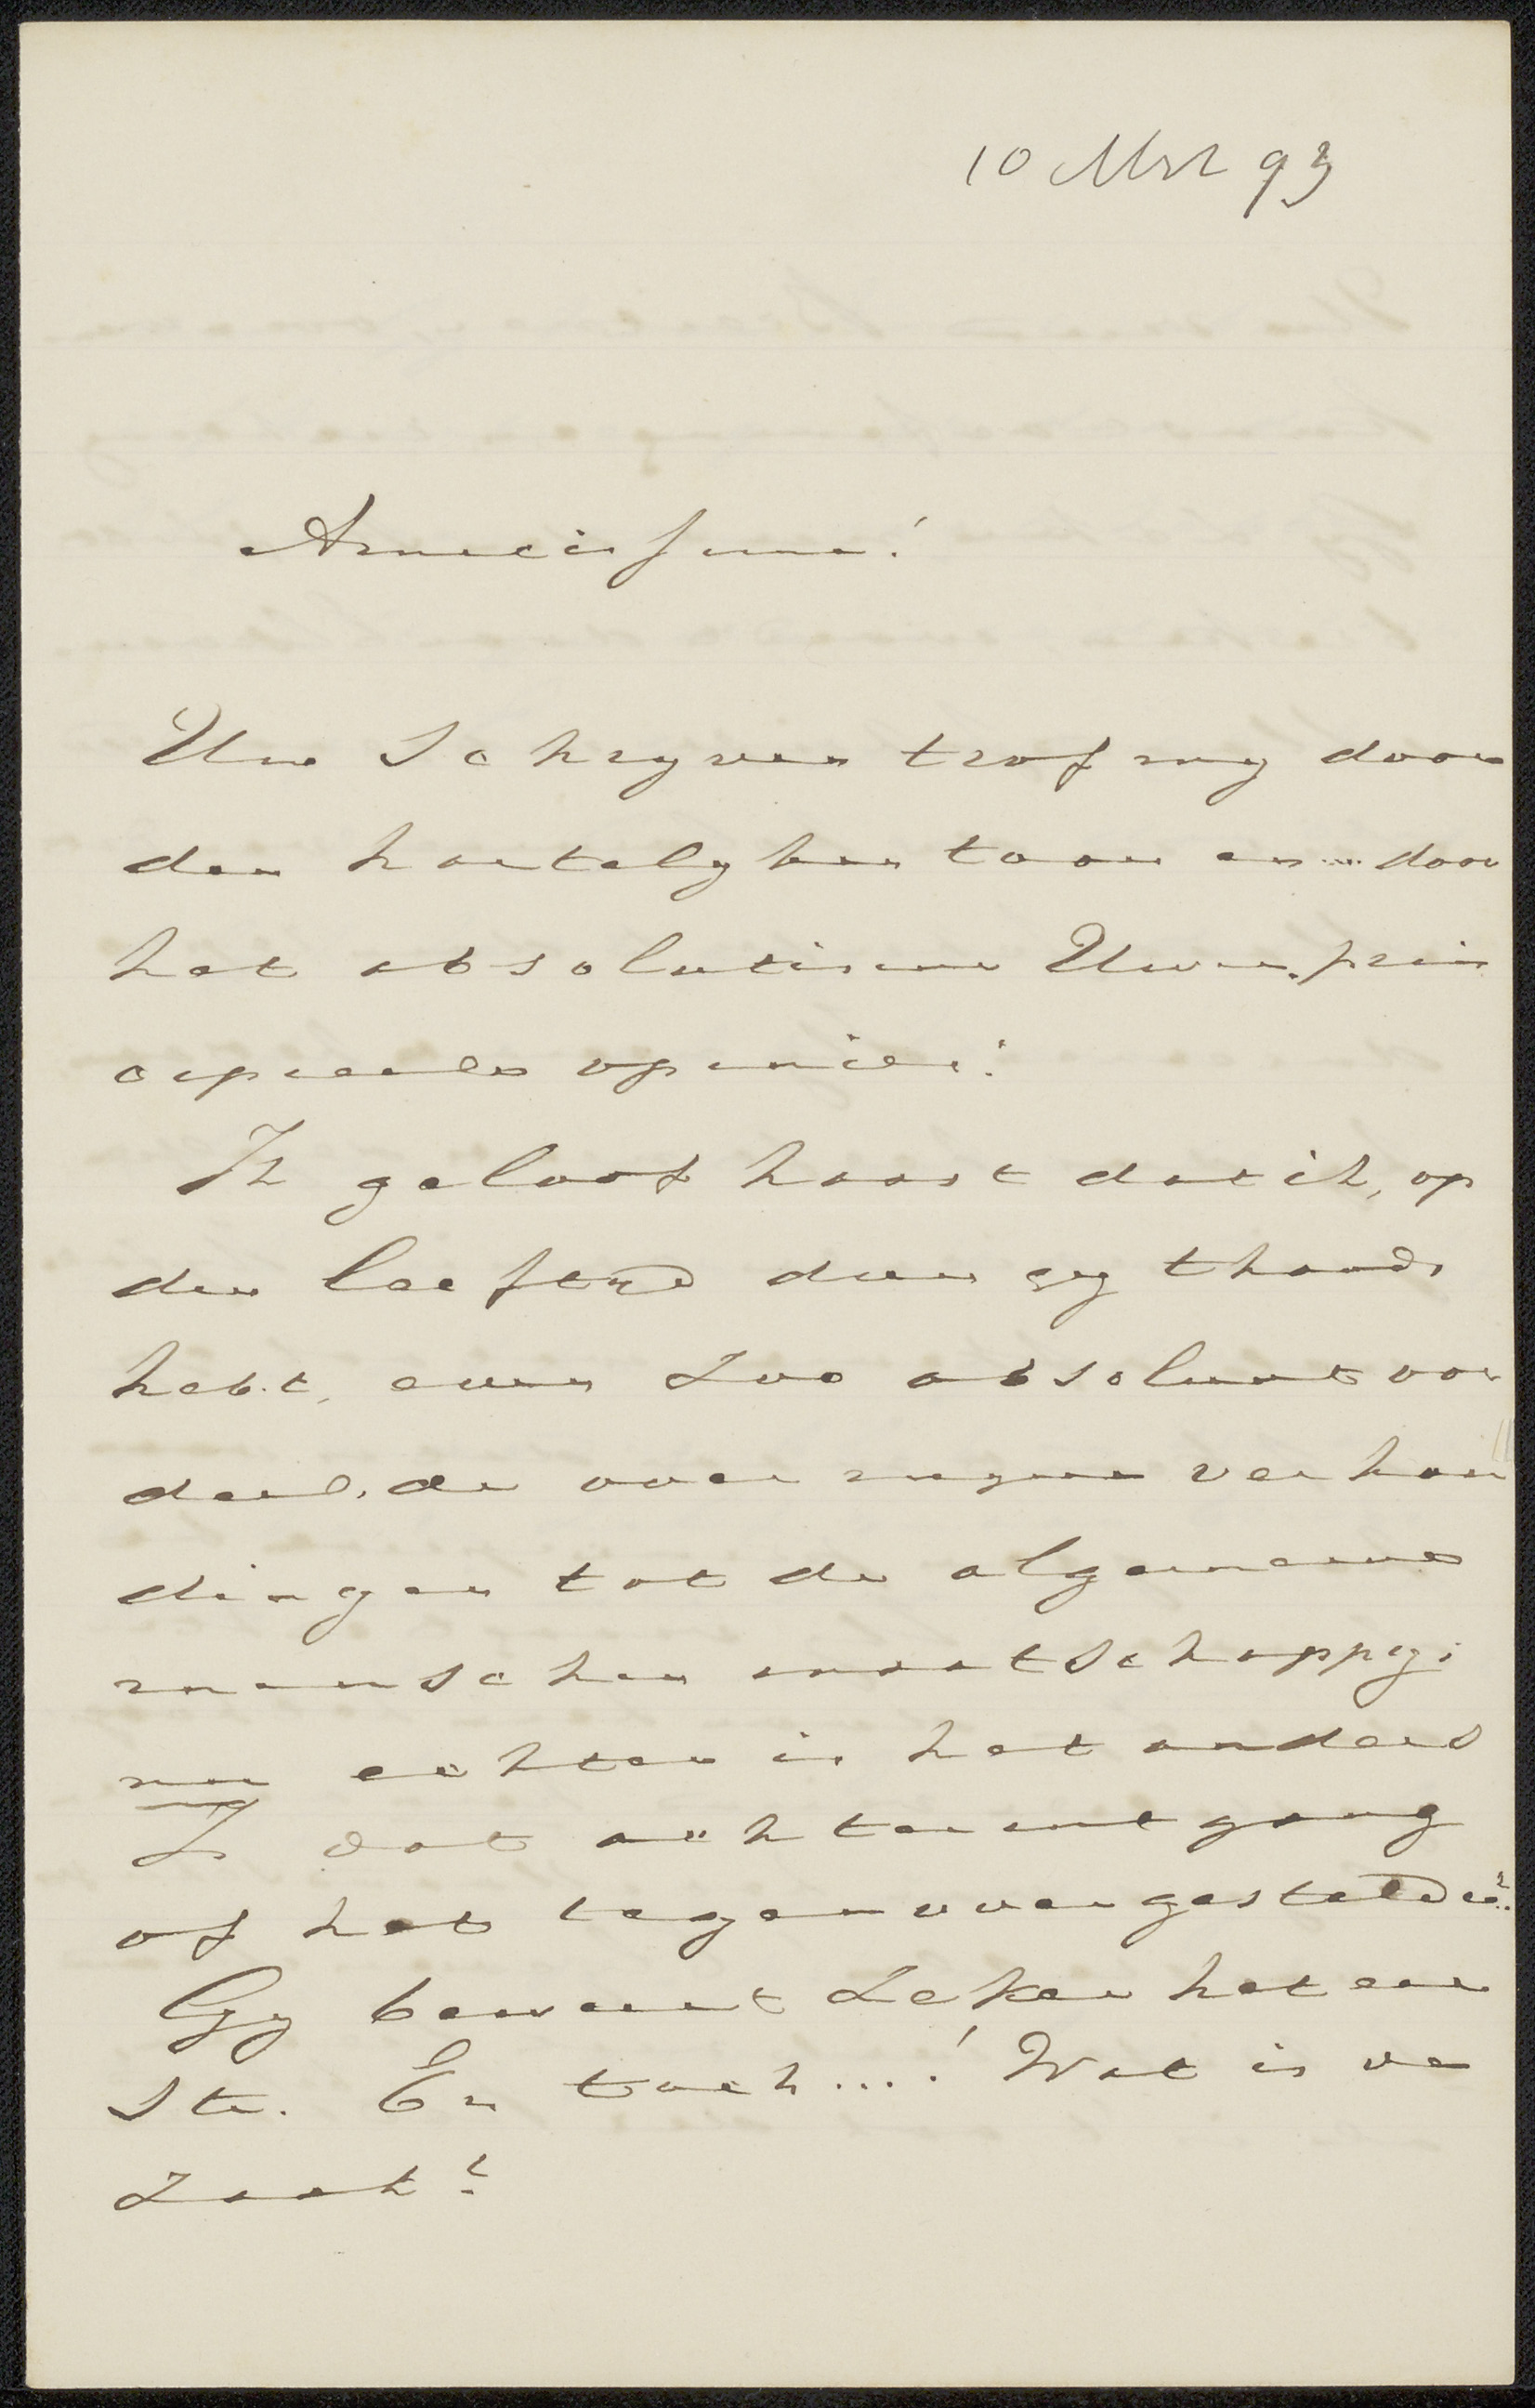 10 Mrt 93
Amicissime!
Uw schryven trof my door
den hartelyken toon en... door
het absolutisme Uwer prin
cipieele opinies!
Ik geloof haast dat ik, op
den leeftyd dien gy thands
hebt, even zoo absoluut oor
deelde over myne verhou
dingen tot de algemeene
menschen maatschappy;
nu echter is het anders
Is dat achteruitgang
of het tegenovergestelde?
Gy beweert zeker het eer
ste. En toch....! Wat is oor
zaak?